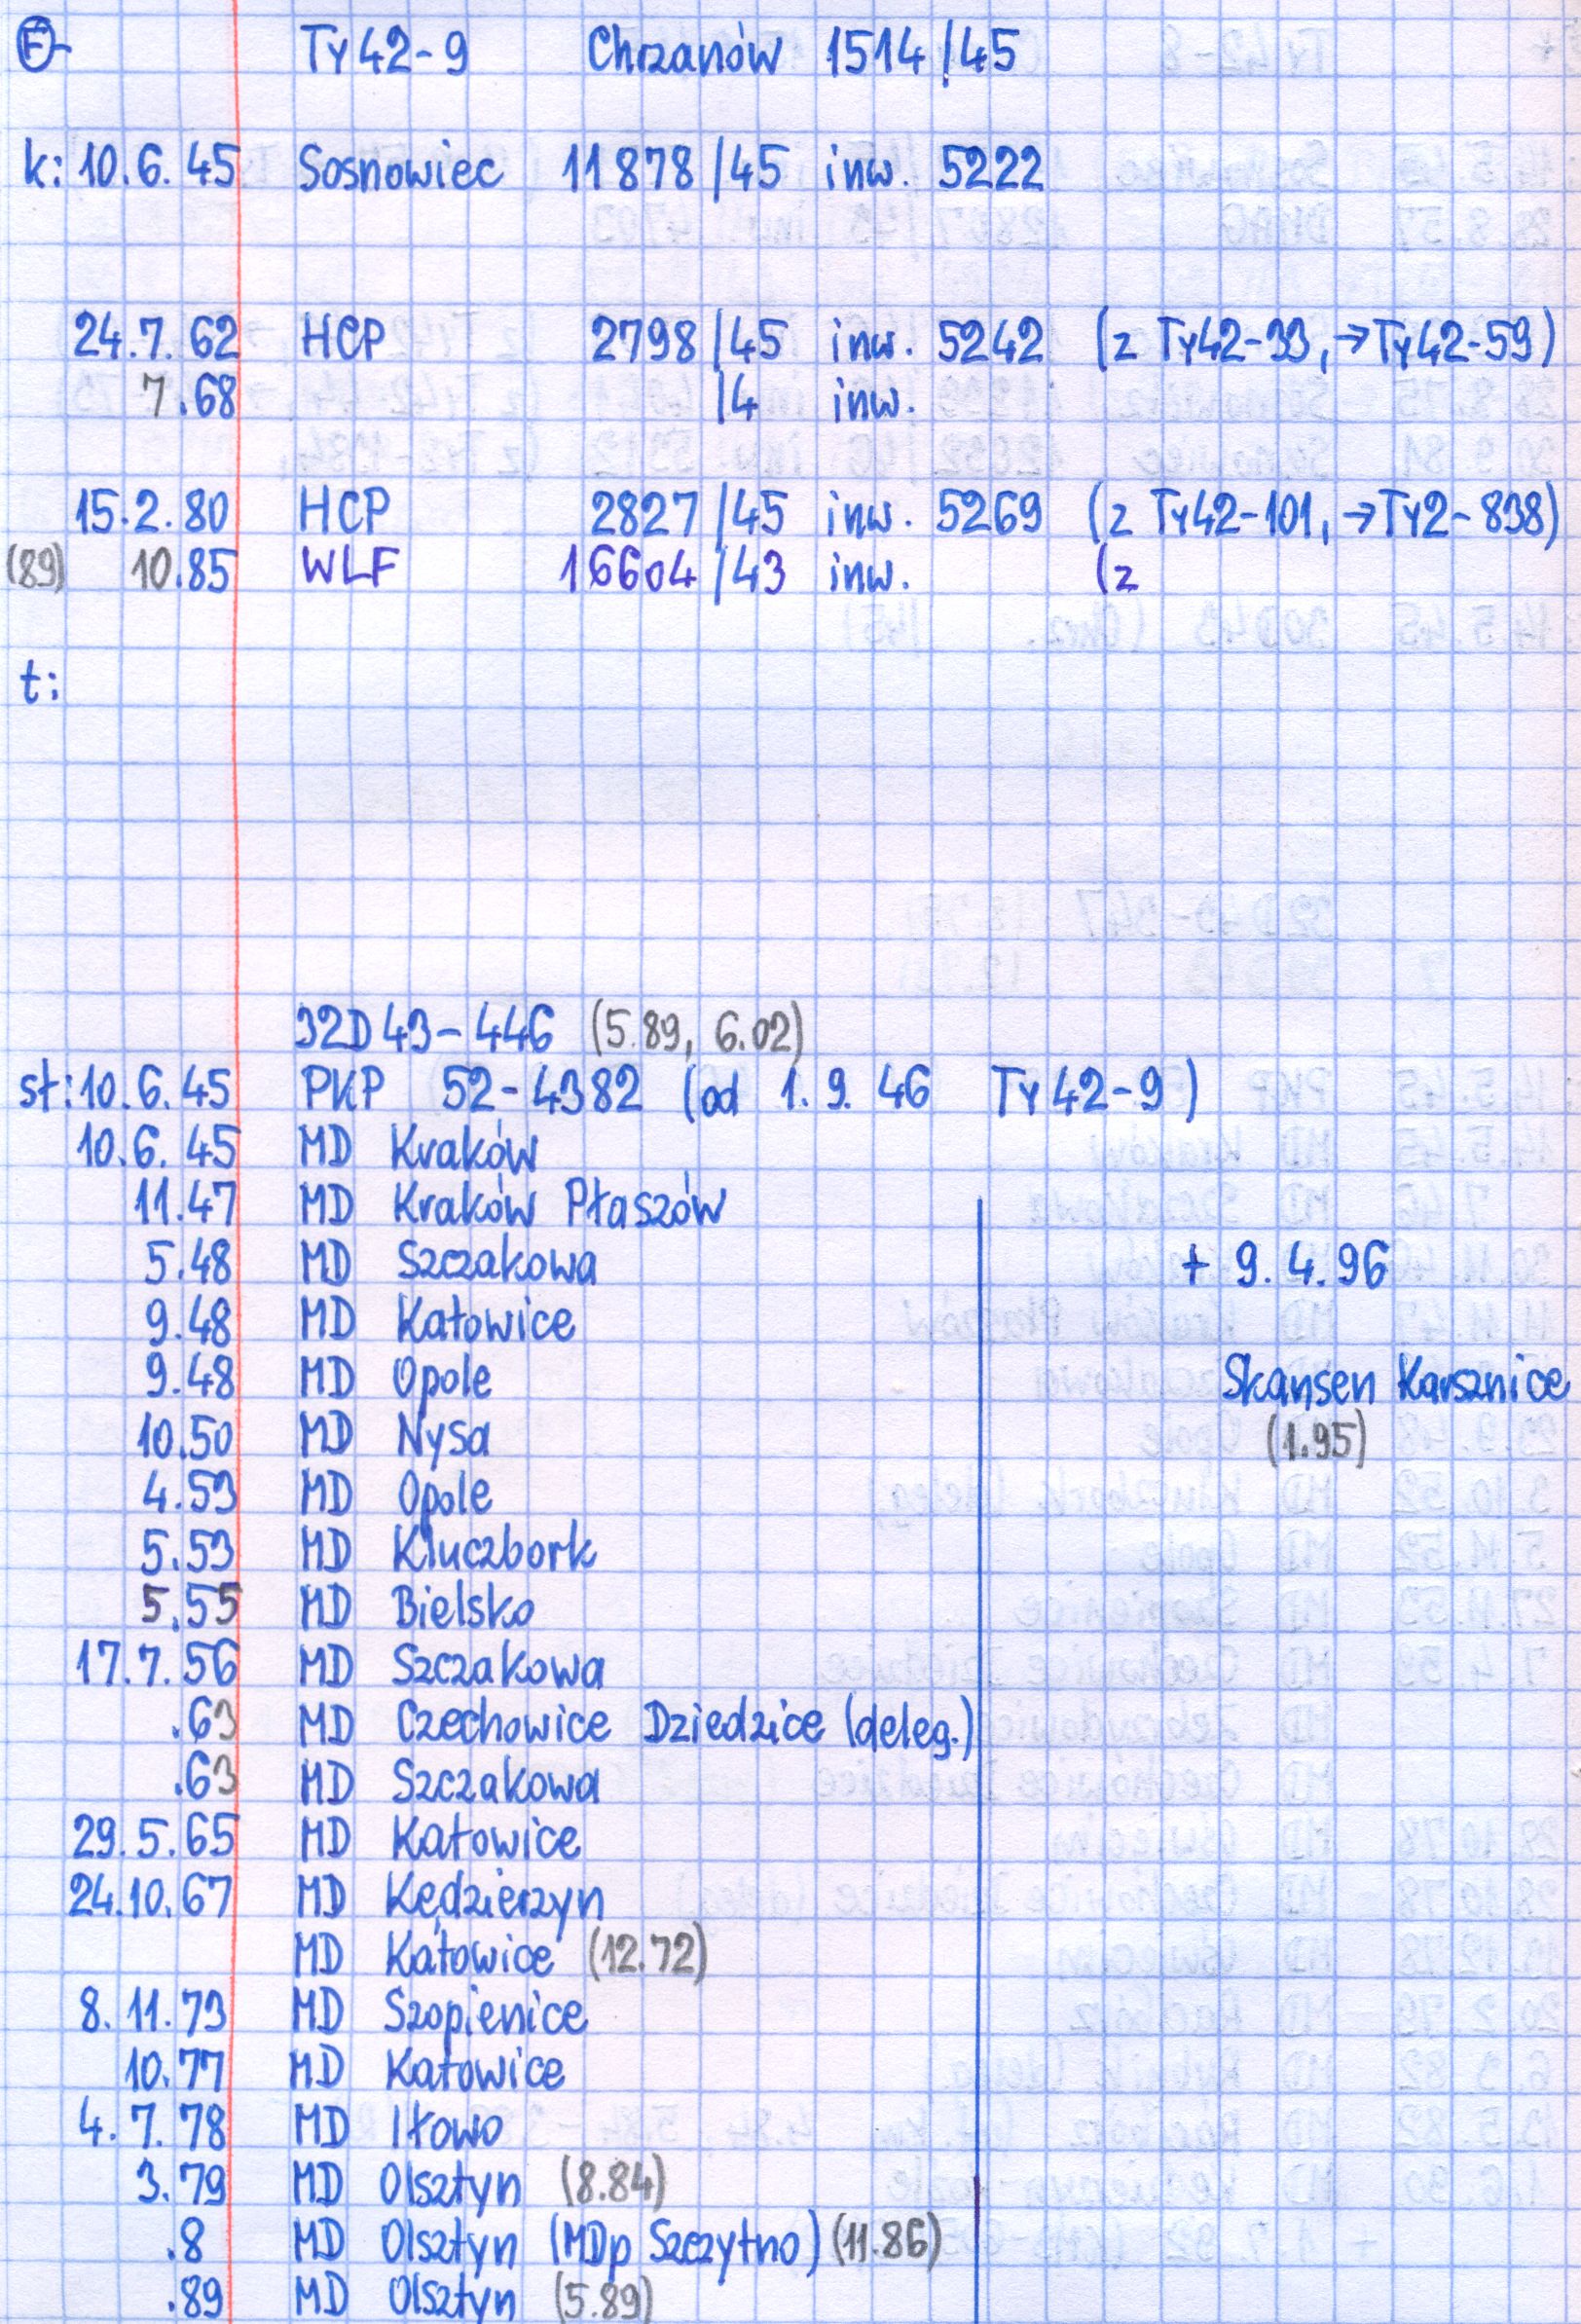 E Ty42-9 Chrzanów 1514/45
k: 10.6.45 Sosnowiec 11878/45 inw. 5222
24.7.62 HCP 2798/45 inw. 5242 (z Ty42-33, →Ty42-59)
7.68 /4 inw.
15.2.80 HCP 2827/45 inw. 5269 (z Ty42-101, →Ty2-838)
(89) 10.85 WLF 16604/43 inw. (z
t:
32D43-446 (5.89, 6.02)
st: 10.6.45 PKP 52-4382 (od 1.9.46 Ty42-9)
10.6.45 MD Kraków
11.47 MD Kraków Płaszów
5.48 MD Szczakowa
+ 9.4.96
9.48 MD Katowice
9.48 MD Opole
Skansen Karsznice
(1.95)
10.50 MD Nysa
4.53 MD Opole
5.53 MD Kluczbork
5.55 MD Bielsko
17.7.56 MD Szczakowa
.63 MD Czechowice Dziedzice (deleg.)
.63 MD Szczakowa
29.5.65 MD Katowice
24.10.67 MD Kędzierzyn
MD Katowice (12.72)
8.11.73 MD Szopienice
10.77 MD Katowice
4.7.78 MD Iłowo
3.79 MD Olsztyn (8.84)
.8 MD Olsztyn (MDp Szczytno) (11.86)
.89 MD Olsztyn (5.89)